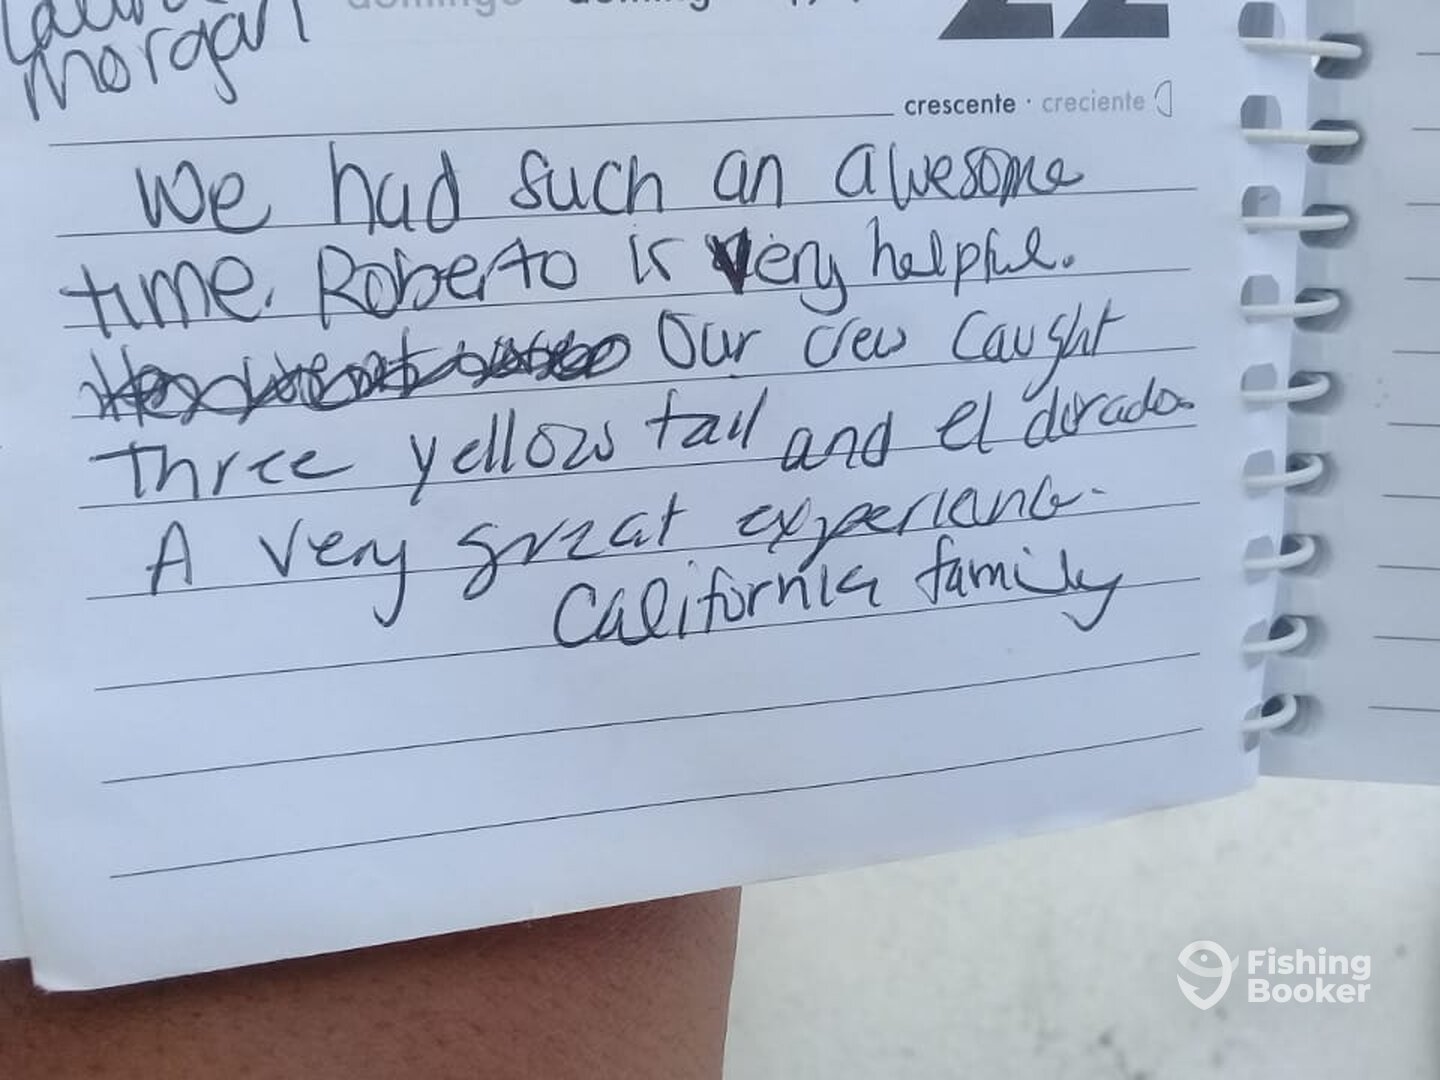 morgan
domingo
22
crescente · creciente
We had such an awesome
time. Roberto is very helpful.
Our crew caught
three yellow tail and el dorado.
A very great experience.
California family
Fishing
Booker